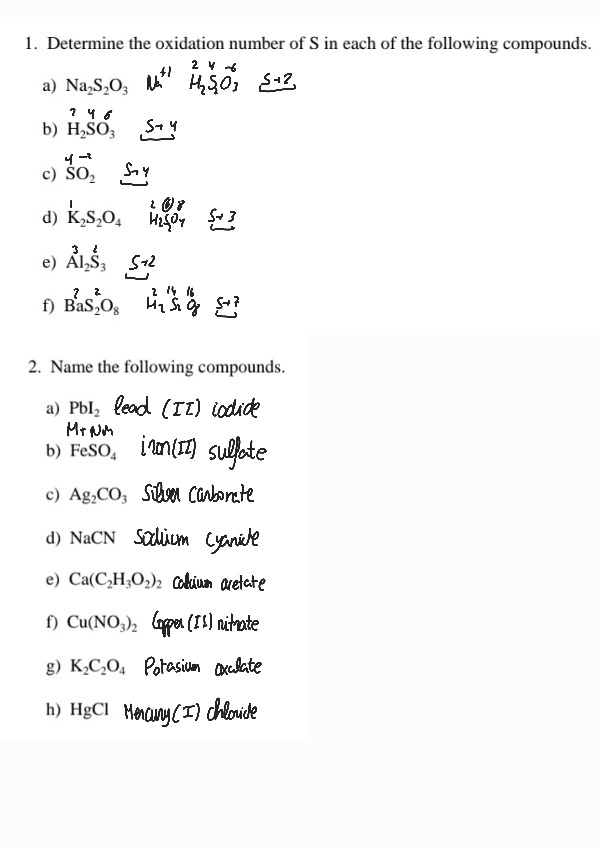 1. Determine the oxidation number of S in each of the following compounds.
2 4 -6
a) Na₂S₂O₃ Na⁺¹ H₂SO₃ S+2
2 4 6
b) H₂SO₃ S+4
4 -2
c) SO₂ S+4
1 2 6 8
d) K₂S₂O₄ H₂SO₄ S+3
3 2
e) Al₂S₃ S+2
2 2 2 14 16
f) BaS₂O₈ S+7
2. Name the following compounds.
a) PbI₂ lead (II) iodide
M+NM
b) FeSO₄ iron(II) sulfate
c) Ag₂CO₃ Silver Carbonate
d) NaCN Sodium Cyanide
e) Ca(C₂H₃O₂)₂ Calcium acetate
f) Cu(NO₃)₂ Copper (II) nitrate
g) K₂C₂O₄ Potasium oxalate
h) HgCl Mercury(I) chloride